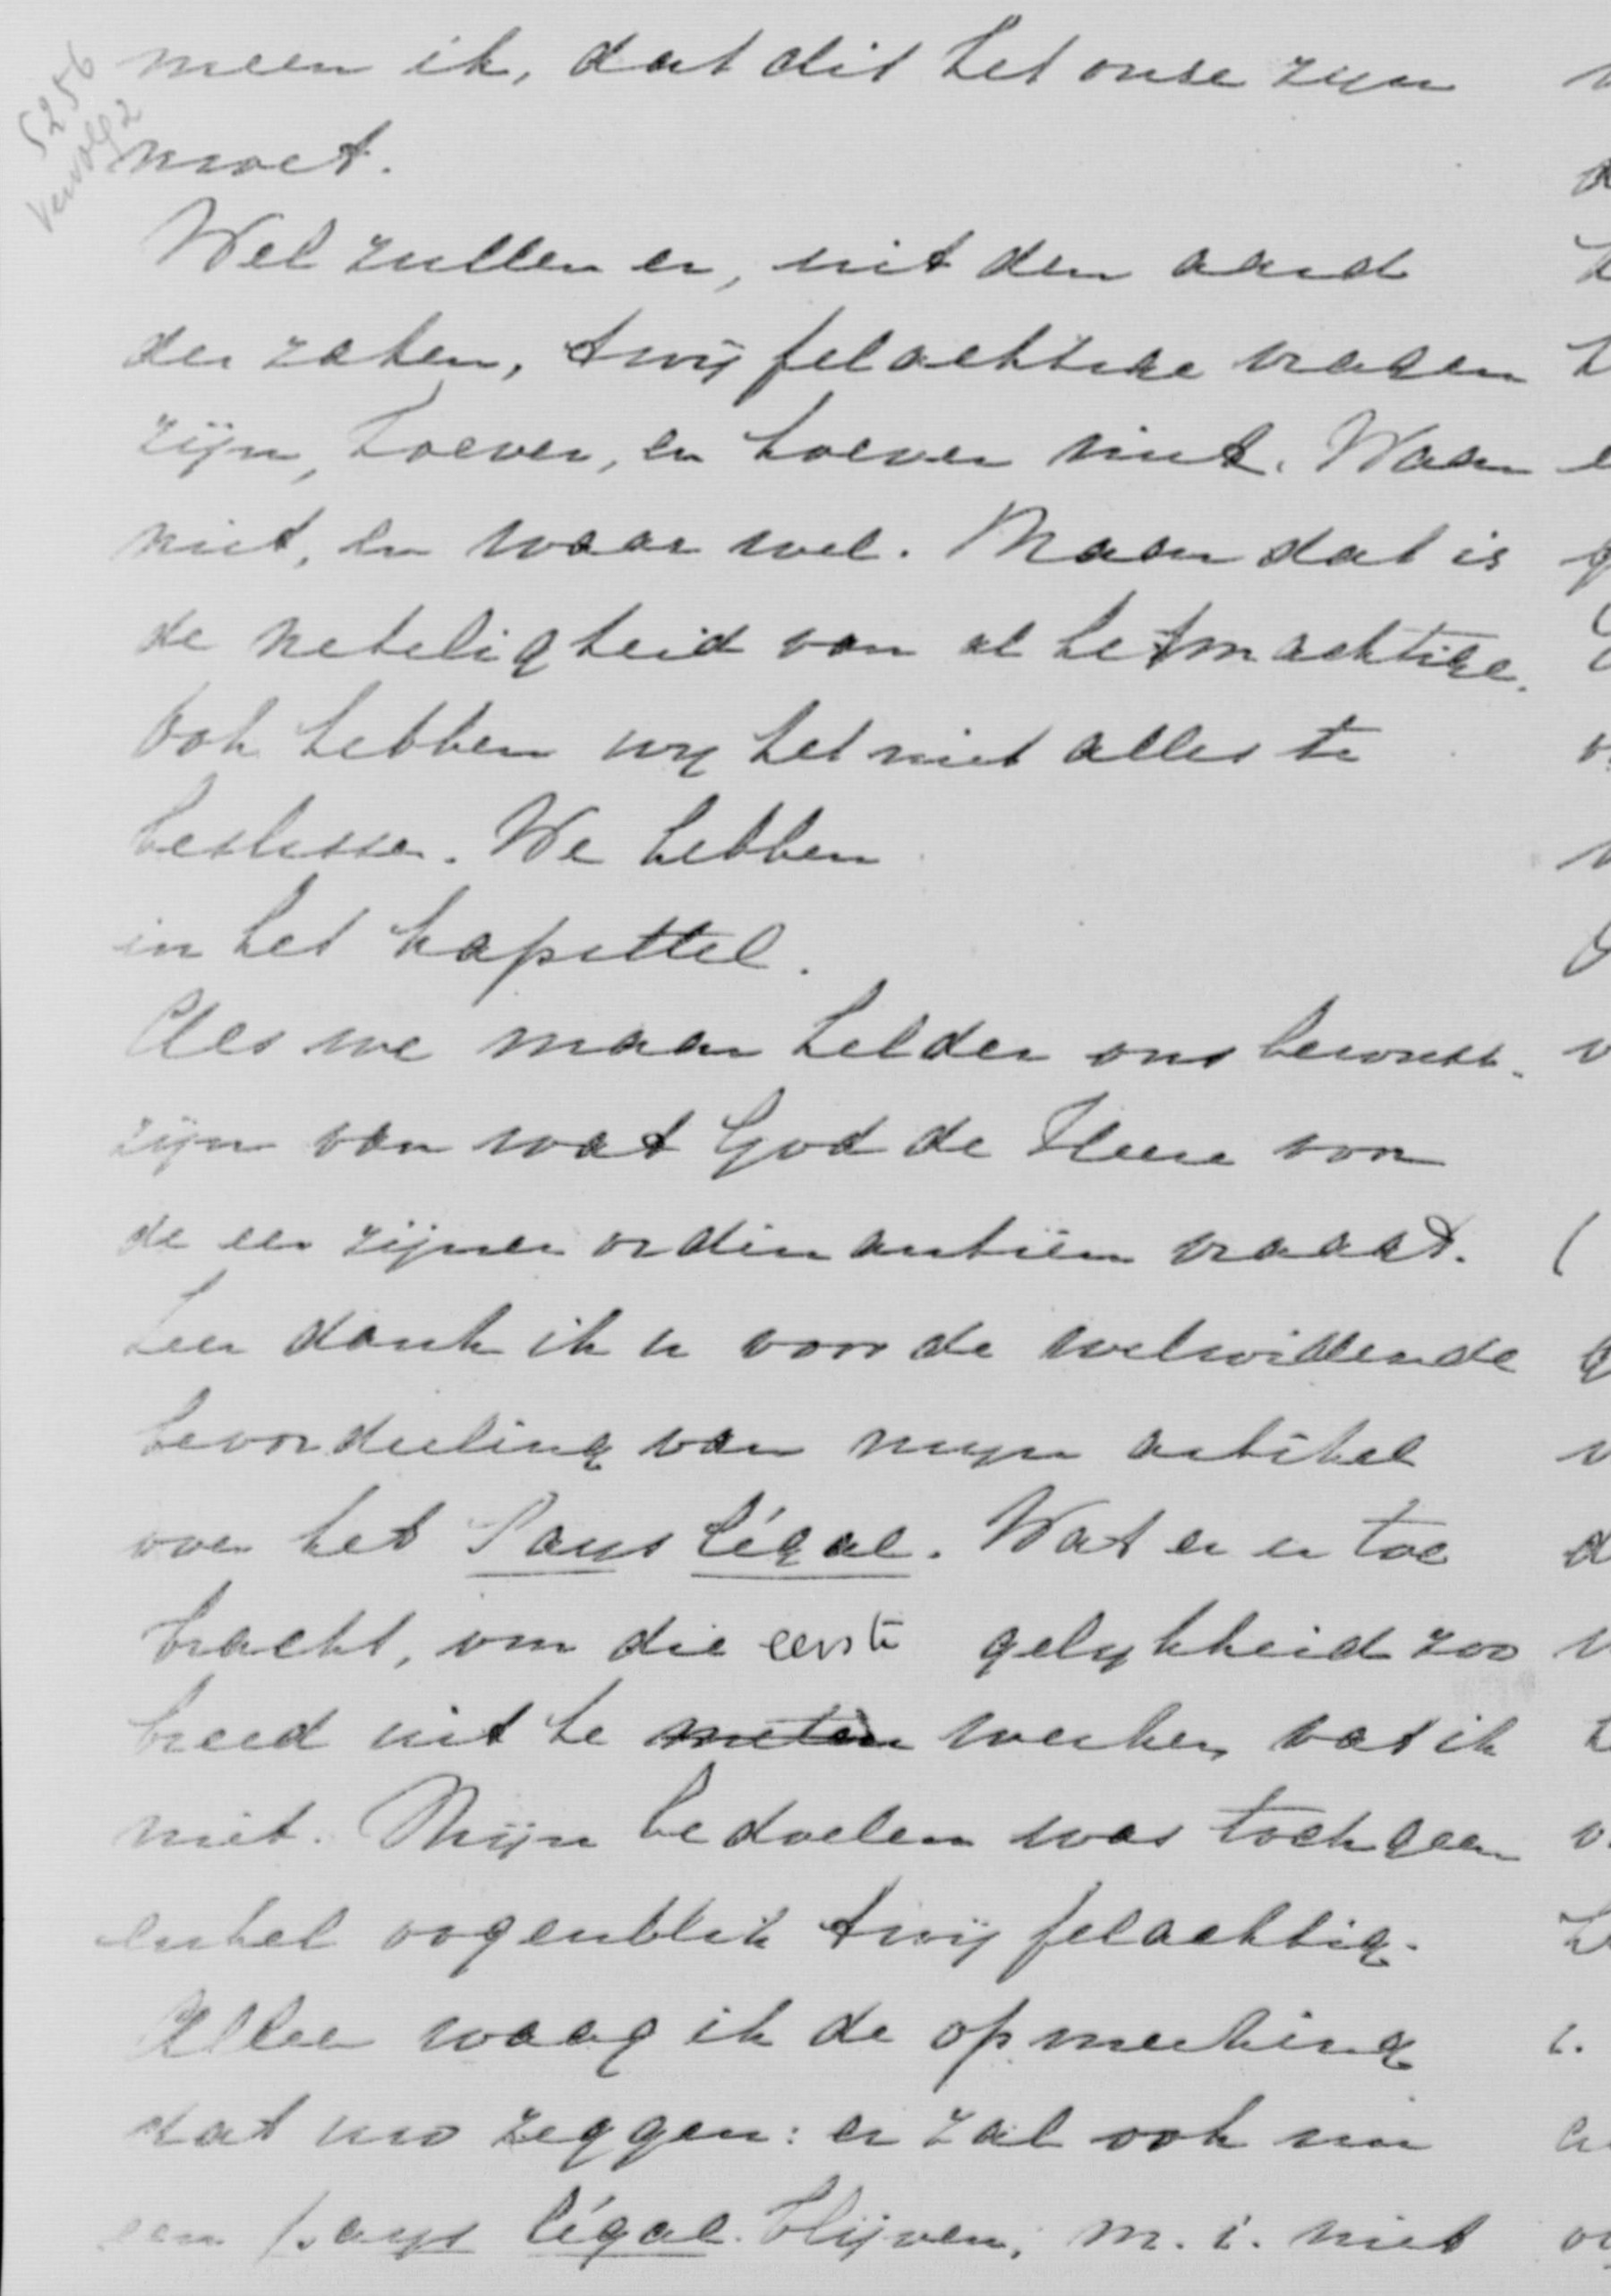 5256
vervolg 2
meen ik, dat dit het onze zijn
moet.
Wel zullen er, uit den aard
der zaken, twijfelachtige vragen
zijn, hoever, en hoever niet. Waar
niet, en waar wel. Maar dat is
de neteligheid van al het machtige.
Ook hebben wij het niet alles te
beslissen. We hebben
in het kapittel.
Als we maar helder ons bewust
zijn van wat God de Heere voor
de eer zijner ordinantiën vraagt.
Zeer dank ik u voor de welwillende
beoordeeling van mijn artikel
over het Pays légal. Wat er u toe
bracht, om die eerste gelijkheid zoo
breed uit te meten werken vat ik
niet. Mijn bedoelen was toch geen
enkel oogenblik twijfelachtig.
Alleen waag ik de opmerking
dat uw zeggen: er zal ook nu
een pays légal blijven, m. i. niet